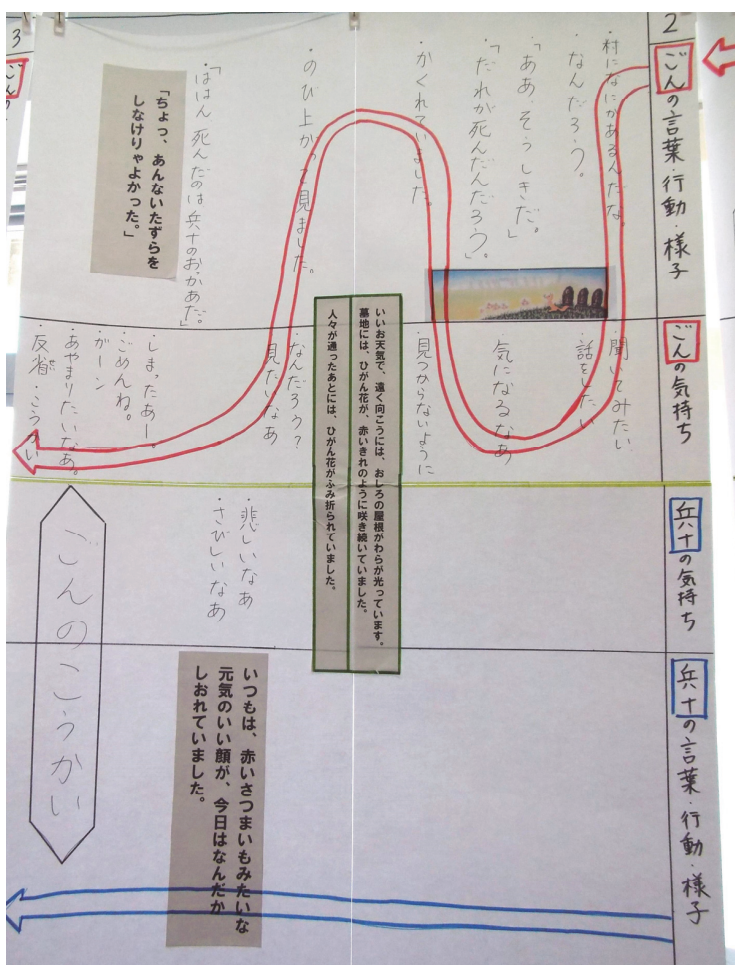 2
ごんの言葉・行動・様子
・村になにかあるんだな。
・なんだろう。
・「ああ、そうしきだ。」
・「だれが死んだんだろう。」
・かくれていました。
・のび上がって見ました。
・「ははん、死んだのは兵十のおっかあだ。」
「ちょっ、あんないたずらを
しなけりゃよかった。」
ごんの気持ち
・聞いてみたい
・話をしたい
気になるなあ
・見つからないように
・なんだろう?
見たいなあ
・しまったあー。
・ごめんね。
・ガーン
・あやまりたいなあ。
・反省・こうかい
いいお天気で、遠く向こうには、おしろの屋根がわらが光っています。
墓地には、ひがん花が、赤いきれのように咲き続いていました。
人々が通ったあとには、ひがん花がふみ折られていました。
兵十の気持ち
・悲しいなあ
・さびしいなあ
兵十の言葉・行動・様子
いつもは、赤いさつまいもみたいな
元気のいい顔が、今日はなんだか
しおれていました。
ごんのこうかい
3